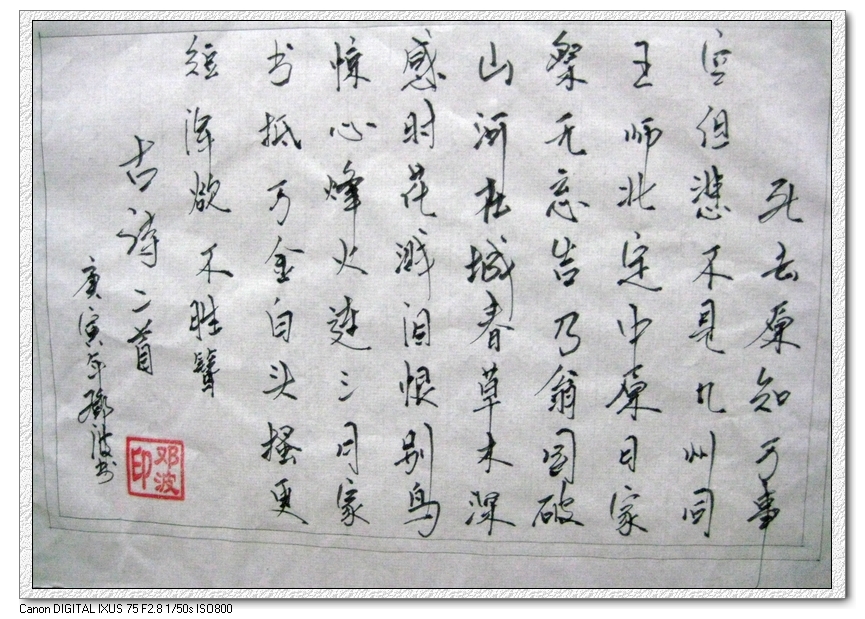 死去原知万事
空但悲不见九州同
王师北定中原日家
祭无忘告乃翁国破
山河在城春草木深
感时花溅泪恨别鸟
惊心烽火连三月家
书抵万金白头搔更
短浑欲不胜簪
古诗二首
庚寅年鄧波书
邓波印
Canon DIGITAL IXUS 75 F2.8 1/50s ISO800